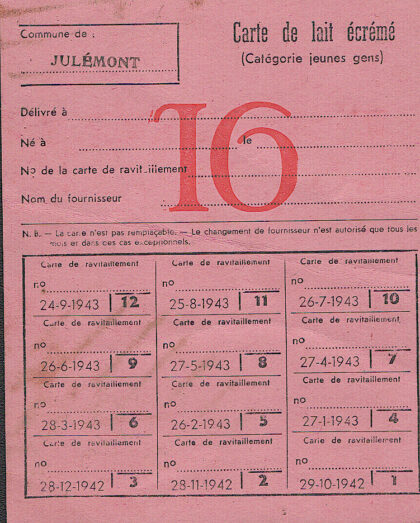 Commune de :
JULÉMONT
Carte de lait écrémé
(Catégorie jeunes gens)
16
Délivré à
Né à le
No de la carte de ravitaillement
Nom du fournisseur
N. B. — La carte n'est pas remplaçable. — Le changement de fournisseur n'est autorisé que tous les
mois et dans des cas exceptionnels.
Carte de ravitaillement Carte de ravitaillement Carte de ravitaillement
no no no
24-9-1943 12 25-8-1943 11 26-7-1943 10
Carte de ravitaillement Carte de ravitaillement Carte de ravitaillement
no no no
26-6-1943 9 27-5-1943 8 27-4-1943 7
Carte de ravitaillement Carte de ravitaillement Carte de ravitaillement
no no no
28-3-1943 6 26-2-1943 5 27-1-1943 4
Carte de ravitaillement Carte de ravitaillement Carte de ravitaillement
no no no
28-12-1942 3 28-11-1942 2 29-10-1942 1